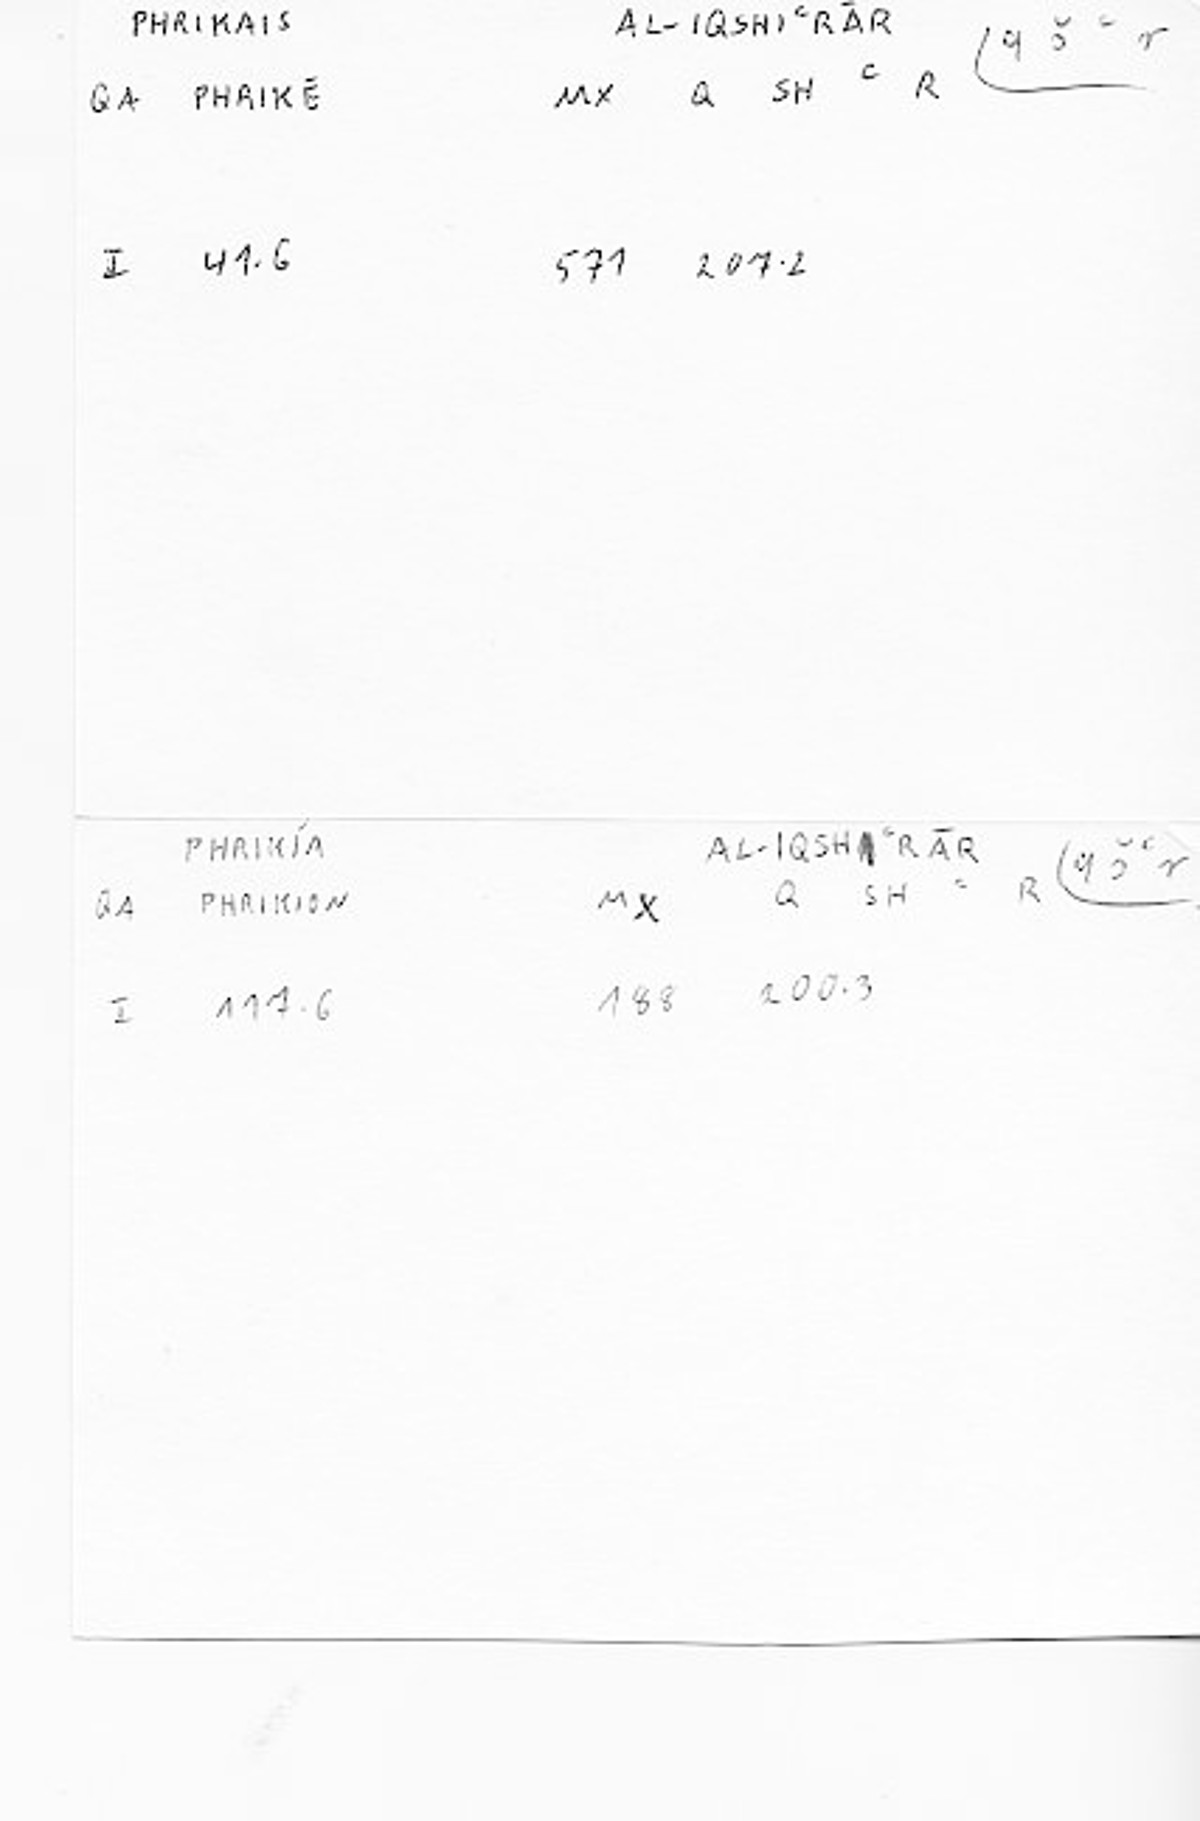 PHRIKAIS AL-IQSHIᶜRĀR
QA PHRIKĒ MX Q SH ᶜ R (q š ᶜ r
I 41.6 571 207.2
PHRIKÍA AL-IQSHIᶜRĀR
QA PHRIKION MX Q SH ᶜ R (q š ᶜ r
I 117.6 188 200.3